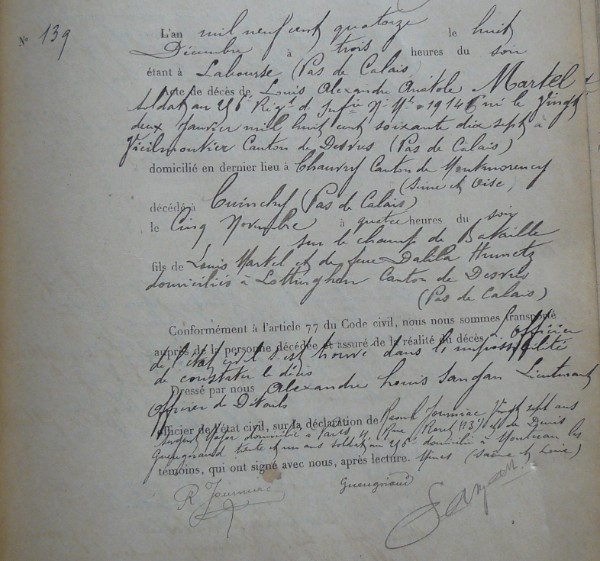 No 139
L'an mil neuf cent quatorze le huit
Décembre à trois heures du soir
étant à Labourse (Pas de Calais)
Acte de décès de Louis Alexandre Anatole Martel
soldat au Regt d'Infie né le vingt
deux Janvier mil huit cent soixante dix sept à
Vieilmoutier Canton de Desvres (Pas de Calais)
domicilié en dernier lieu à Chauvry Canton de Montmorency
(Seine et Oise)
décédé à Cuinchy (Pas de Calais)
le Cinq Novembre à quatre heures du soir
sur le champ de Bataille
fils de Louis Martel et de feue Dalila
domiciliés à Lottinghen Canton de Desvres
(Pas de Calais)
Conformément à l'article 77 du Code civil, nous nous sommes transporté
auprès de la personne décédée et assuré de la réalité du décès
L'officier
de l'état civil s'est trouvé dans l'impossibilité
de constater le décès
Dressé par nous Alexandre Louis Sangan Lieutenant
Officier de Détails
officier de l'état civil, sur la déclaration de Raoul Journiac Vingt sept ans
Sergent Major domicilié à Paris Rue et de Denis
Gueugniaud trente et un ans soldat au domicilié à Montceau les
témoins, qui ont signé avec nous, après lecture. Mines (Saône et Loire)
R. Journiac
Gueugniaud
Sangan